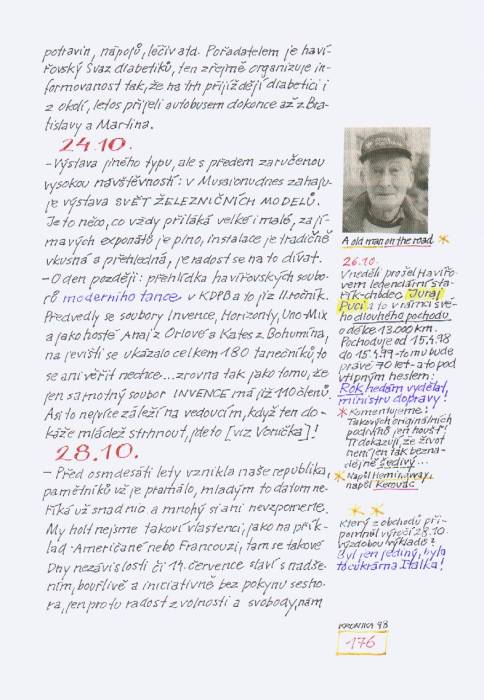 potravin, nápojů, léčiv atd. Pořadatelem je haví-
řovský Svaz diabetiků, ten zřejmě organizuje in-
formovanost tak, že na trh přijíždějí diabetici i
z okolí, letos přijeli autobusem dokonce až z Bra-
tislavy a Martina.
24.10.
- Výstava jiného typu, ale s předem zaručenou
vysokou návštěvností: v Musaionu dnes zahaju-
je výstava SVĚT ŽELEZNIČNÍCH MODELŮ.
Je to něco, co vždy přiláká velké i malé, zají-
mavých exponátů je plno, instalace je tradičně
vkusná a přehledná, je radost se na to dívat.
- O den později: přehlídka havířovských soubo-
rů moderního tance v KDPB a to již II. ročník.
Předvedly se soubory Invence, Horizonty, Uno-Mix
a jako hosté Anaj z Orlové a Kates z Bohumína,
na jevišti se ukázalo celkem 180 tanečníků, to
se ani věřit nechce... zrovna tak jako tomu, že
jen samotný soubor INVENCE má již 110 členů.
Asi to nejvíce záleží na vedoucím, když ten do-
káže mládež strhnout, jde to [viz Vonička]!
28.10.
- Před osmdesáti lety vznikla naše republika,
pamětníků už je pramálo, mladým to datum ne-
říká už snad nic a mnohý si ani nevzpomene.
My holt nejsme takoví vlastenci, jako na přík-
lad Američané nebo Francouzi, tam se takové
Dny nezávislosti či 14. červenec slaví s nadše-
ním, bouřlivě a iniciativně bez pokynu sesho-
ra, jen pro tu radost z volnosti a svobody, nám
A old man on the road.
26.10.
V neděli prošel Havířo-
vem legendární sta-
řík-chodec Juraj
Puci a to v rámci své-
ho dlouhého pochodu
o délce 13.000 km.
Pochoduje od 15.4.98
do 15.4.99 - tomu bude
právě 70 let - a to pod
vtipným heslem:
Rok nedám vydělat
ministru dopravy!
Komentujeme:
Takových originálních
podivínů jen houšť!
Ti dokazují, že život
není jen tak bezna-
dějně šedivý...
Napůl Hemingway,
napůl Kerouac
Který z obchodů při-
pomněl výročí 28.10.
výzdobou výkladů?
Byl jen jediný, byla
to cukrárna Italka!
KRONIKA 98
176